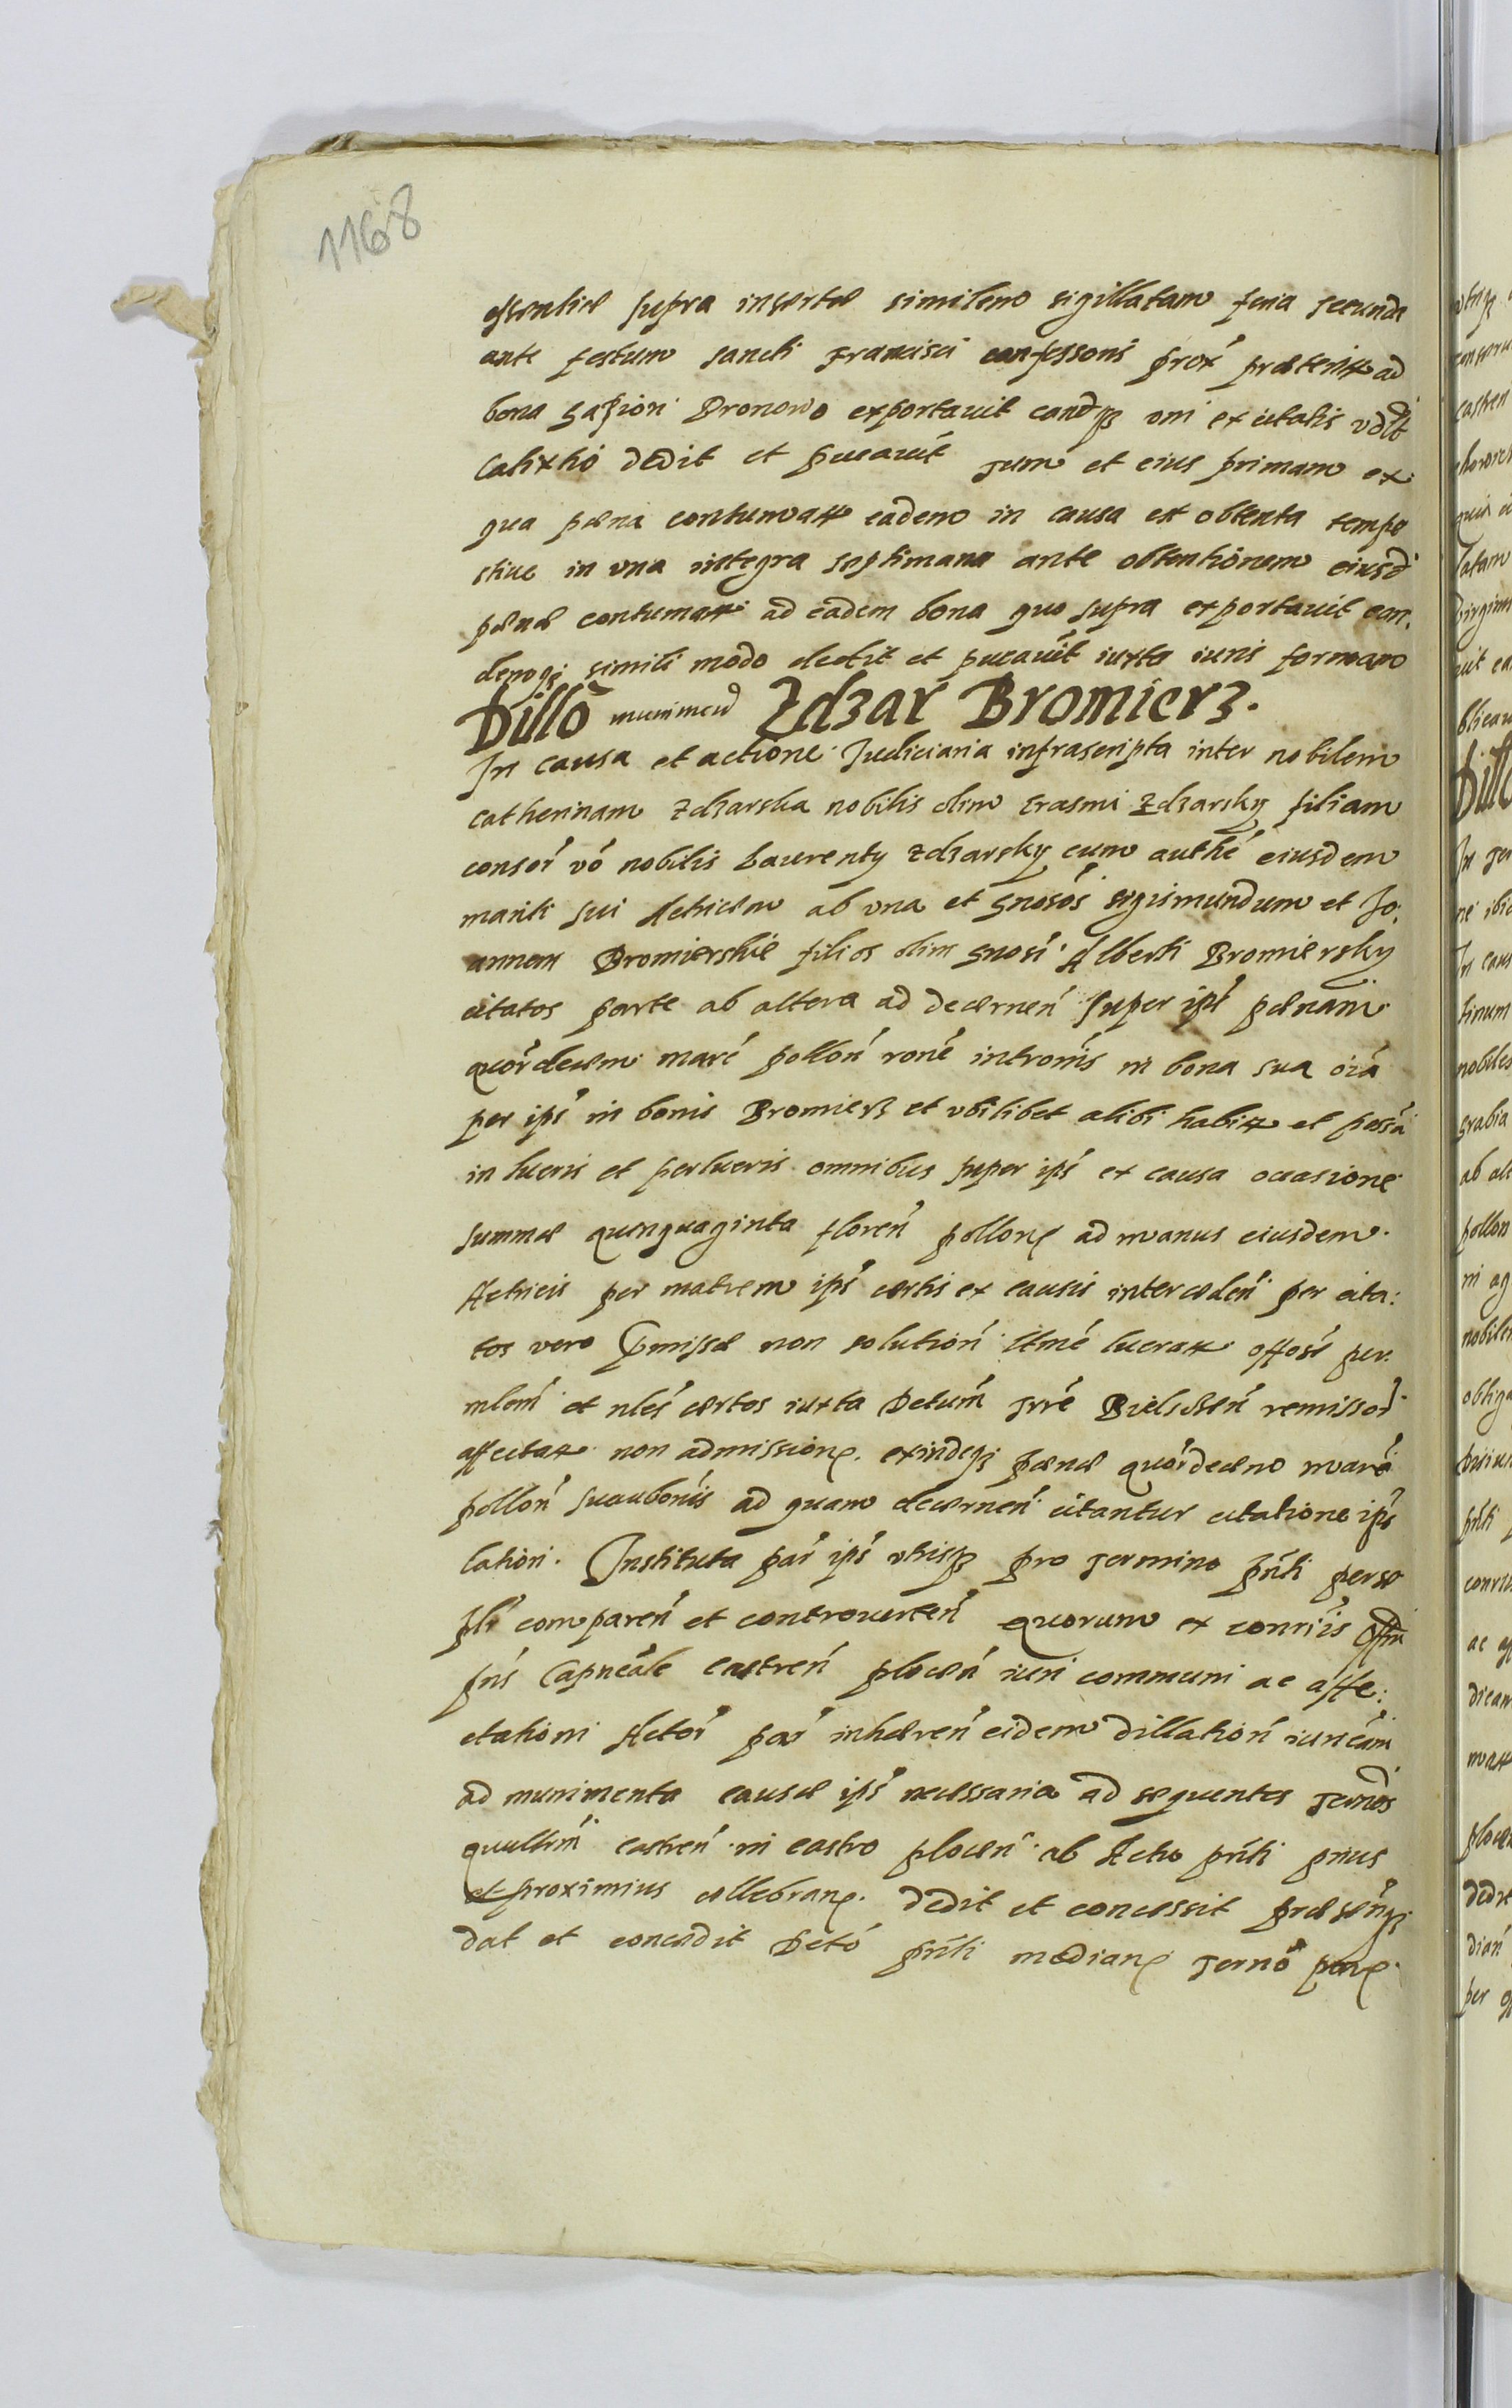 1168
essentiae supra insertae similem sigillatam feria secunda
ante festum sancti Francisci confessoris prox praeterit ad
bona Bronowo exportavit eandqz vni ex citatis vdlt
Calixtho dedit et pucavit Jum et eius primam ex
qua paena contumat eadem in causa est obtenta tempe
stive in vna integra septimana ante obtentionem eiusd
paenae contumat ad eadem bona quo supra exportavit ean,
demqz simili modo dedit et pucavit iuxta iuris formam
Dillo munimen Zdzar Bromierz.
In causa et actione Iudiciaria infrascripta inter nobilem
Catherinam Zdzarska nobilis olim Erasmi Zdzarsky filiam
consor vo nobilis Laurenty Zdzarsky cum authe eiusdem
mariti sui Actricem ab vna et Gnosos Sigismundum et Jo,
annem Bromierskie filios olim Gnosi Alberti Bromiersky
citatos parte ab altera ad decernen super ips paenam
quordecem marc pollon rone intromis in bona sua oia
per ips in bonis Bromierz et vbilibet alibi habit et possa
in lucris et perlucris omnibus super ips ex causa occasione
summae quinquaginta floren pollon ad manus eiusdem
Actricis per matrem ips certis ex causis interceden per cita:
tos vero pmissae non solution ltme lucrat offose per
mlem et nles certos iuxta Detum Trre Bielscen remissor
affectat non admission. exindeqz paenae quordecem marc
pollon succubonis ad quam decernen citantur citatione ips
lation. Instituta par ips vtrisqz pro termino pnti perso
plr comparen et controverten quorum ex contriis Offm
pns Capneale castren plocen iuri communi ac affe:
ctationi Actor par inhaeren eidem dillation iuncam
ad munimenta causae ips necessaria ad sequentes termos
quullrm castren in castro plocen ab Actu pnti prius
et proximius cellebran. dedit et concessit praesenqz
dat et concedit Deto pnti median termo peren